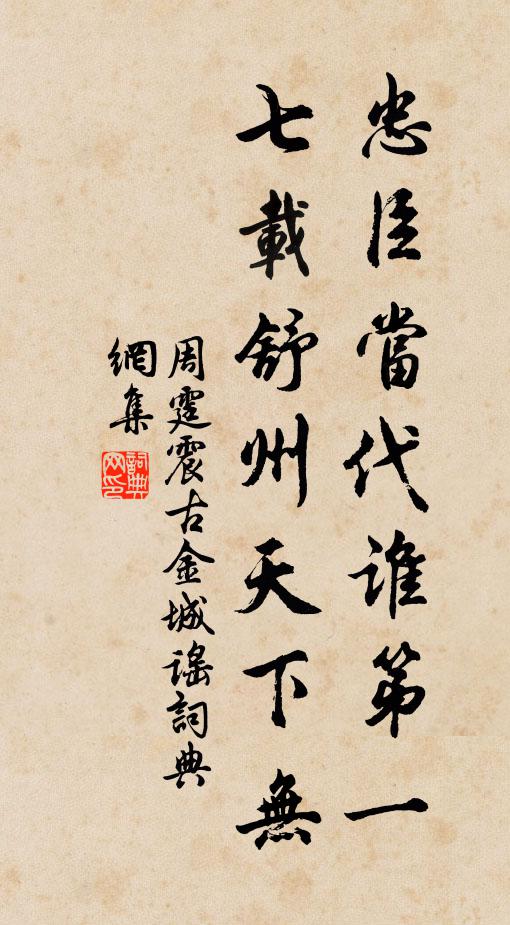 忠臣當代誰第一
七載舒州天下無
周霆震古金城謠詞典
網集
詞典
网印